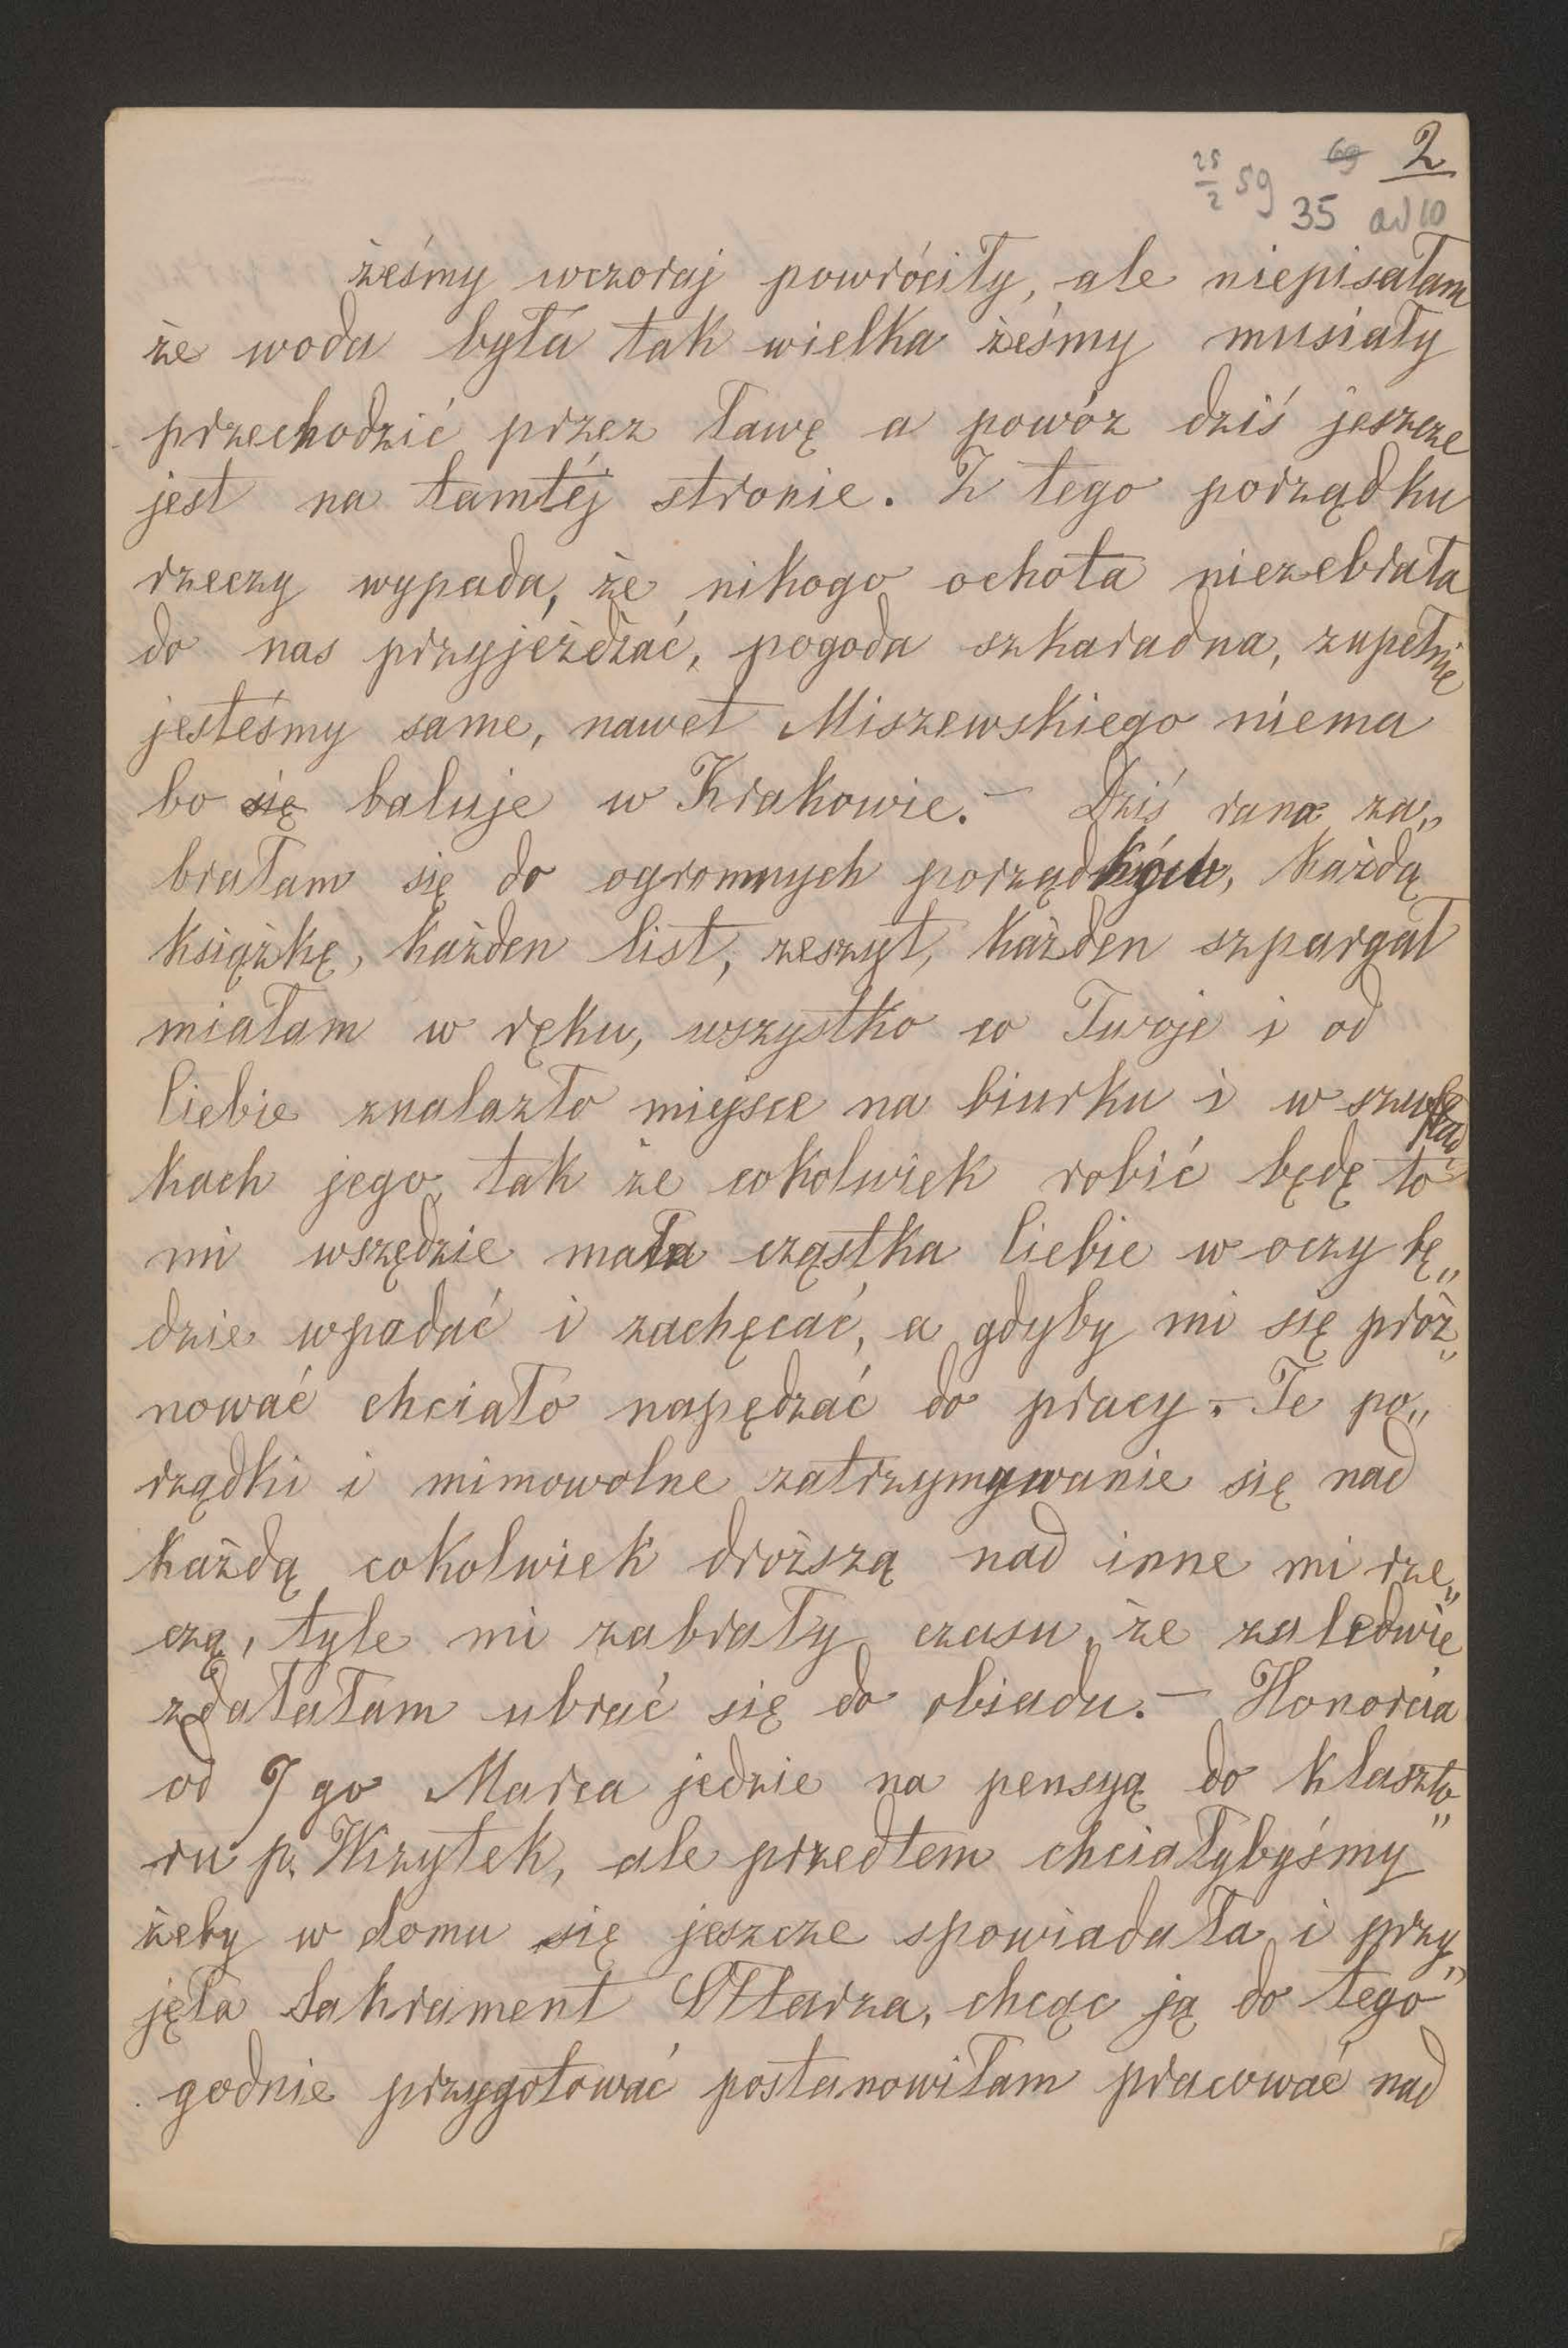 2
25/2 59 69
35 ad 10
żeśmy wczoraj powróciły, ale niepisałam
że woda była tak wielka żeśmy musiały
przechodzić przez ławę a powóz dziś jeszcze
jest na tamtéj stronie. Z tego porządku
rzeczy wypada, że nikogo ochota niezebrała
do nas przyjeżdżać, pogoda szkaradna, zupełnie
jesteśmy same, nawet Miszewskiego niema
bo się baluje w Krakowie. – Dziś rano za„
brałam się do ogromnych porządków, każdą
książkę, każden list, zeszyt, każden szpargał
miałam w ręku, wszystko co Twoje i od
Ciebie znalazło miejsce na biurku i w szuflad„
kach jego, tak że cokolwiek robić będę to
mi wszędzie mała cząstka Ciebie w oczy bę„
dzie wpadać i zachęcać, a gdyby mi się próż„
nować chciało napędzać do pracy. – Te po„
rządki i mimowolne zatrzymywanie się nad
każdą cokolwiek droższą nad inne mi rze„
czą, tyle mi zabrały czasu, że zaledwie
zdałałam ubrać się do obiadu. – Honorcia
od 7 go Marca jedzie na pensyą do klaszto„
ru p. Wizytek, ale przedtem chciałybyśmy
żeby w domu się jeszcze spowiadała i przy„
jęła Sakrament Ołtarza, chcąc ją do tego
godnie przygotować postanowiłam pracować nad